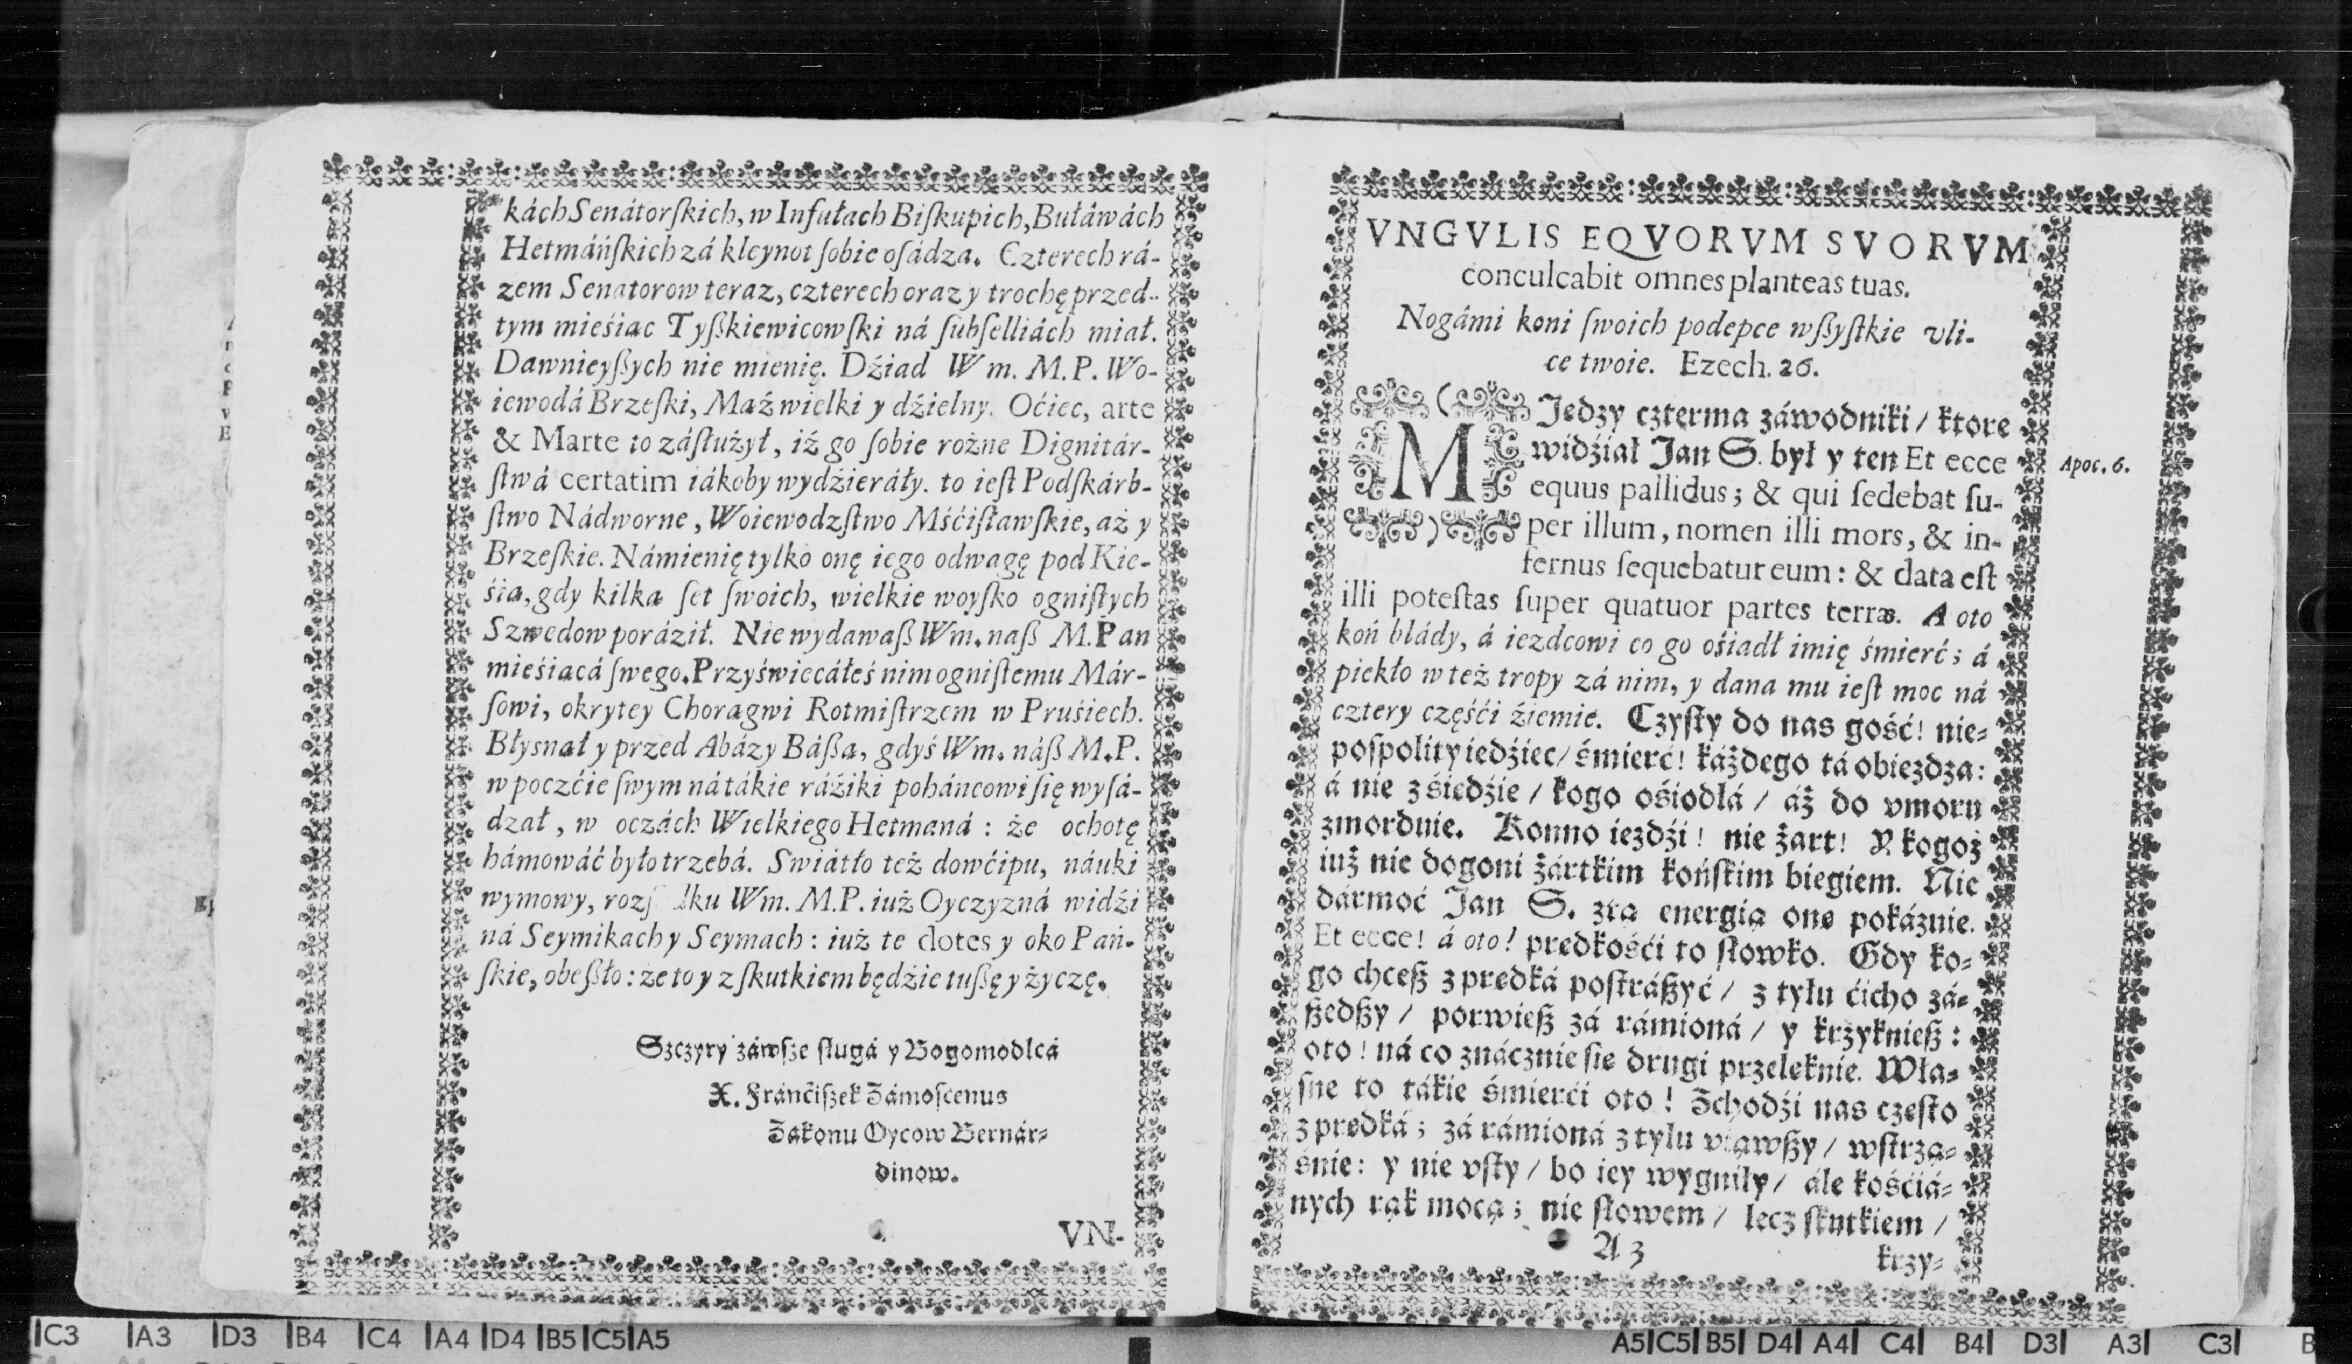 kách Senátorſkich, w Infułach Biſkupich, Buławách
Hetmáńſkich zá kleynot ſobie oſádza. Czterech rá-
zem Senatorow teraz, czterech oraz y trochę przed-
tym mieśiac Tyßkiewicowſki ná ſubſelliách miał.
Dawnieyßych nie mienię. Dźiad Wm. M.P. Wo-
iewodá Brzeſki, Maź wielki y dźielny. Oćiec, arte
& Marte to záſłużył, iż go ſobie rożne Dignitár-
ſtwá certatim iákoby wydźieráły. to ieſt Podſkárb-
ſtwo Nádworne, Woiewodzſtwo Mśćiſławſkie, aż y
Brzeſkie. Námienię tylko onę iego odwagę pod Kie-
śia, gdy kilka ſet ſwoich, wielkie woyſko ogniſtych
Szwedow poráził. Nie wydawaß Wm. naß M. Pan
mieśiacá ſwego. Przyświecáłeś nim ogniſtemu Már-
ſowi, okrytey Choragwi Rotmiſtrzem w Pruśiech.
Błysnał y przed Abázy Báßa, gdyś Wm. náß M.P.
w poczćie ſwym ná tákie ráźiki poháncowi ſię wyſá-
dzał, w oczách Wielkiego Hetmaná : że ochotę
hámowáć było trzebá. Swiátło też dowćipu, náuki
wymowy, Wm. M.P. iuż Oyczyzná widźi
ná Seymikach y Seymach : iuż te dotes y oko Pań-
ſkie, obeßło : że to y z ſkutkiem będźie tußę y życzę.
Szczyry záwſze ſługá y Bogomodlcá
X. Fránćiſzek Zámoſcenus
Zakonu Oycow Bernár-
dinow.
VN-
VNGVLIS EQVORVM SVORVM
conculcabit omnes planteas tuas.
Nogámi koni ſwoich podepce wßyſtkie vli-
ce twoie. Ezech. 26.
MJedzy czterma záwodniki / ktore
widźiał Jan S. był y ten Et ecce
Apoc. 6.
equus pallidus; & qui ſedebat ſu-
per illum, nomen illi mors, & in-
fernus ſequebatur eum : & data eſt
illi poteſtas ſuper quatuor partes terræ. A oto
koń blády, á iezdcowi co go ośiadł imię śmierć; á
piekło w też tropy zá nim, y dana mu ieſt moc ná
cztery częśći źiemie. Czyſty do nas gość! nie-
poſpolity iedźiec / śmierć! káżdego tá obiezdza:
á nie z śiedźie / kogo ośiodlá / áż do vmoru
zmorduie. Konno iezdźi! nie żart! Y kogoż
iuż nie dogoni żártkim końſkim biegiem. Nie
dármoć Jan S. zra energia one pokáznie.
Et ecce! á oto! predkośći to ſłowko. Gdy ko-
go chceß z predká poſtráßyć / z tyłu ćicho zá-
ßedßy / porwieß zá rámioná / y krzyknieß :
oto! ná co znácznie ſie drugi przeleknie. Wła-
ſne to tákie śmierći oto! Zchodźi nas czeſto
z predká; zá rámioná z tylu viawßy / wſtrza-
śnie: y nie vſty / bo iey wygnily / ále kośćiá-
nych rąk mocą; nie ſłowem / lecz ſkutkiem /
A 3
krzy-